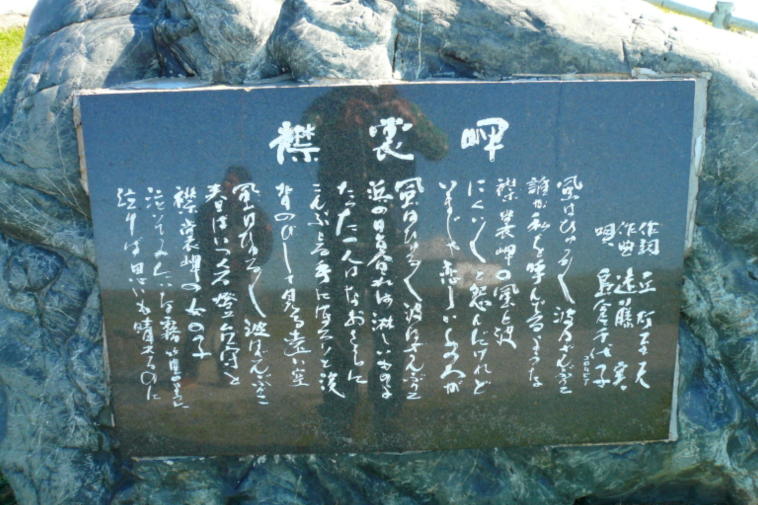 襟裳岬
作詞 丘灯至夫
作曲 遠藤 実
唄 島倉千代子 コロムビア
風はひゅる〱 波はざんぶりこ
誰か私を呼んでるような
襟裳岬の風と波
にくい〱と怨んだけれど
いまじゃ恋しいあの人が
風はひゅる〱 波はざんぶりこ
浜の日暮れは淋しいものよ
たった一人はなおさらに
こんぶとる手にほろりと涙
背のびして見る遠い空
風はひゅる〱 波はざんぶりこ
春はいつ来る燈台守と
襟裳岬の女の子
泣いてみたいな霧笛のように
泣けば思いも晴れるのに